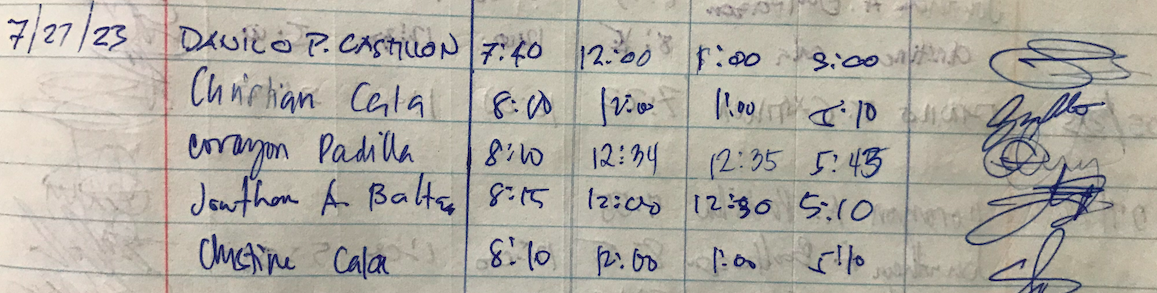 7/27/23 DANILO P. CASTILLON 7:40 12:00 1:00 5:00
Christian Cala 8:00 12:00 1:00 5:10
corazon Padilla 8:10 12:34 12:35 5:45
Jonathan A. 8:15 12:00 12:30 5:10
Christine Cala 8:10 12:00 1:00 5:10